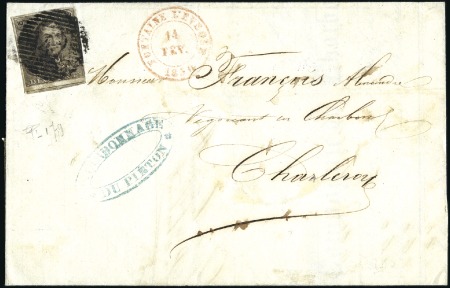 FONTAINE L'EVEQUE
14
FEV.
1850
Monsieur François Alexandre
Négociant en Charbons
Charleroy
CHARBONNAGE
DU PIÉTON